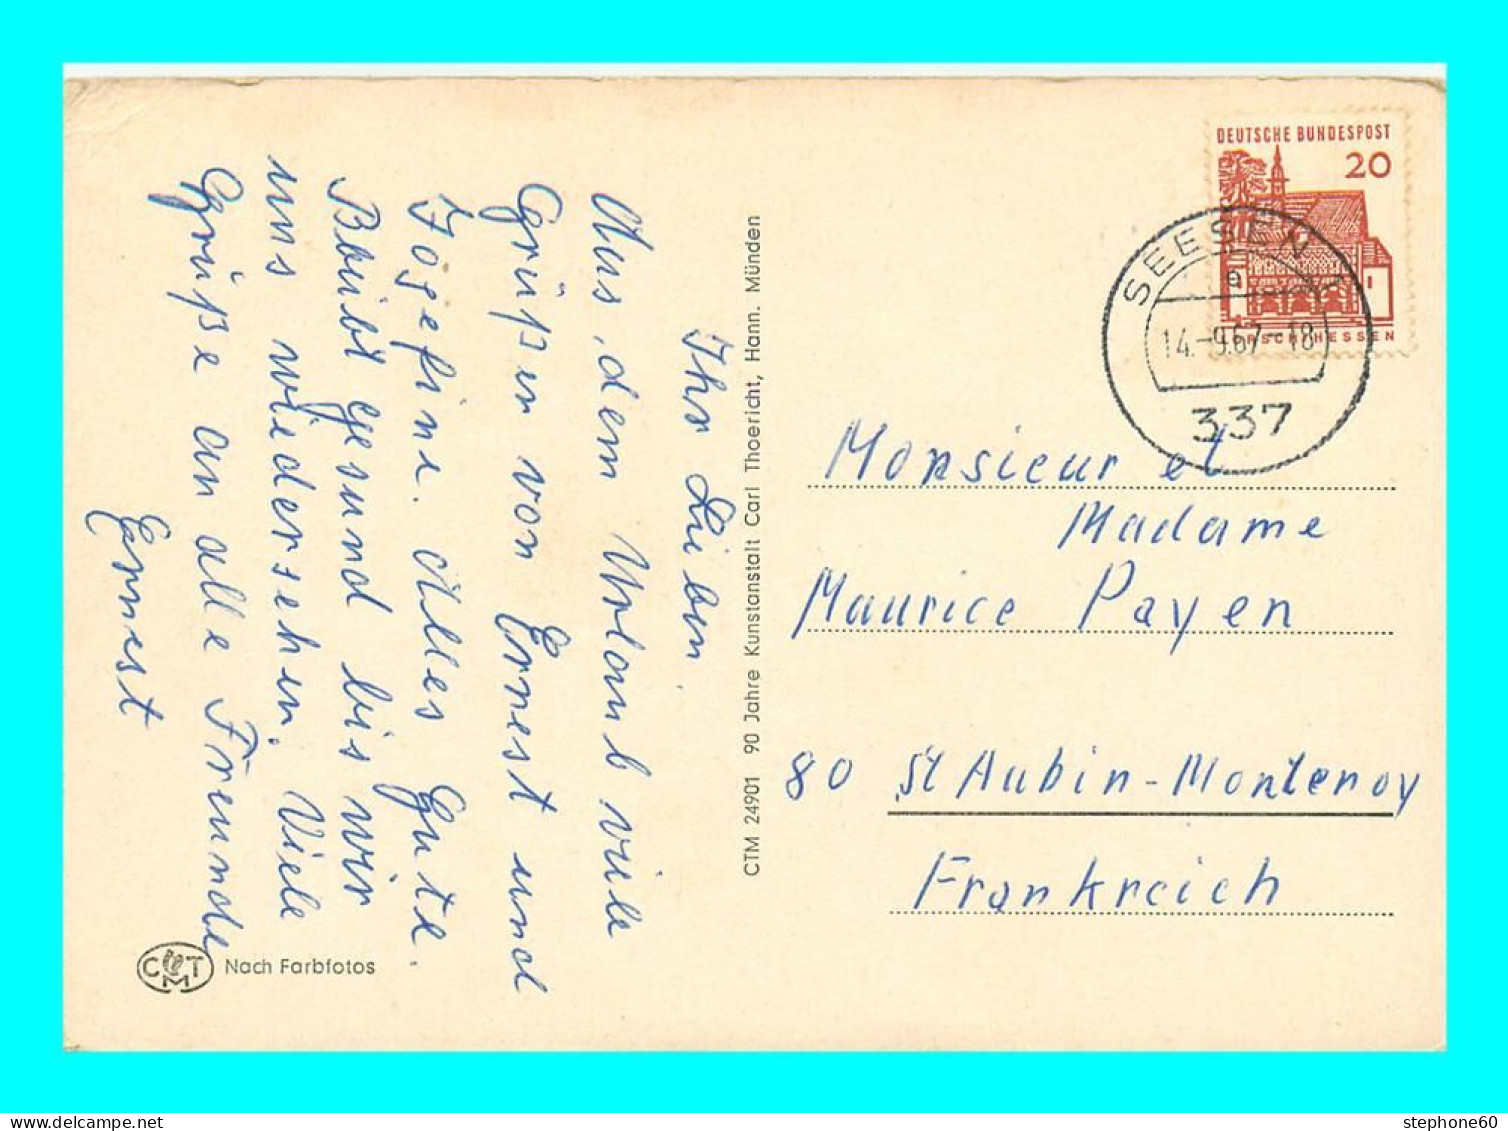 Ihr Lieben.
Aus dem Urlaub viele
Grüßen von Ernest und
Josefine. Alles Gute
Bleibt gesund bis wir
uns wiedersehen. Viele
Grüße an alle Freunde
Ernest
CTM 24901 90 Jahre Kunstanstalt Carl Thoericht, Hann. Münden
CMT
Nach Farbfotos
DEUTSCHE BUNDESPOST
20
LORSCH/HESSEN
SEESEN
a
14.-9.67-18
337
Monsieur et
Madame
Maurice Payen
80 St Aubin-Montenoy
Frankreich
stephone60